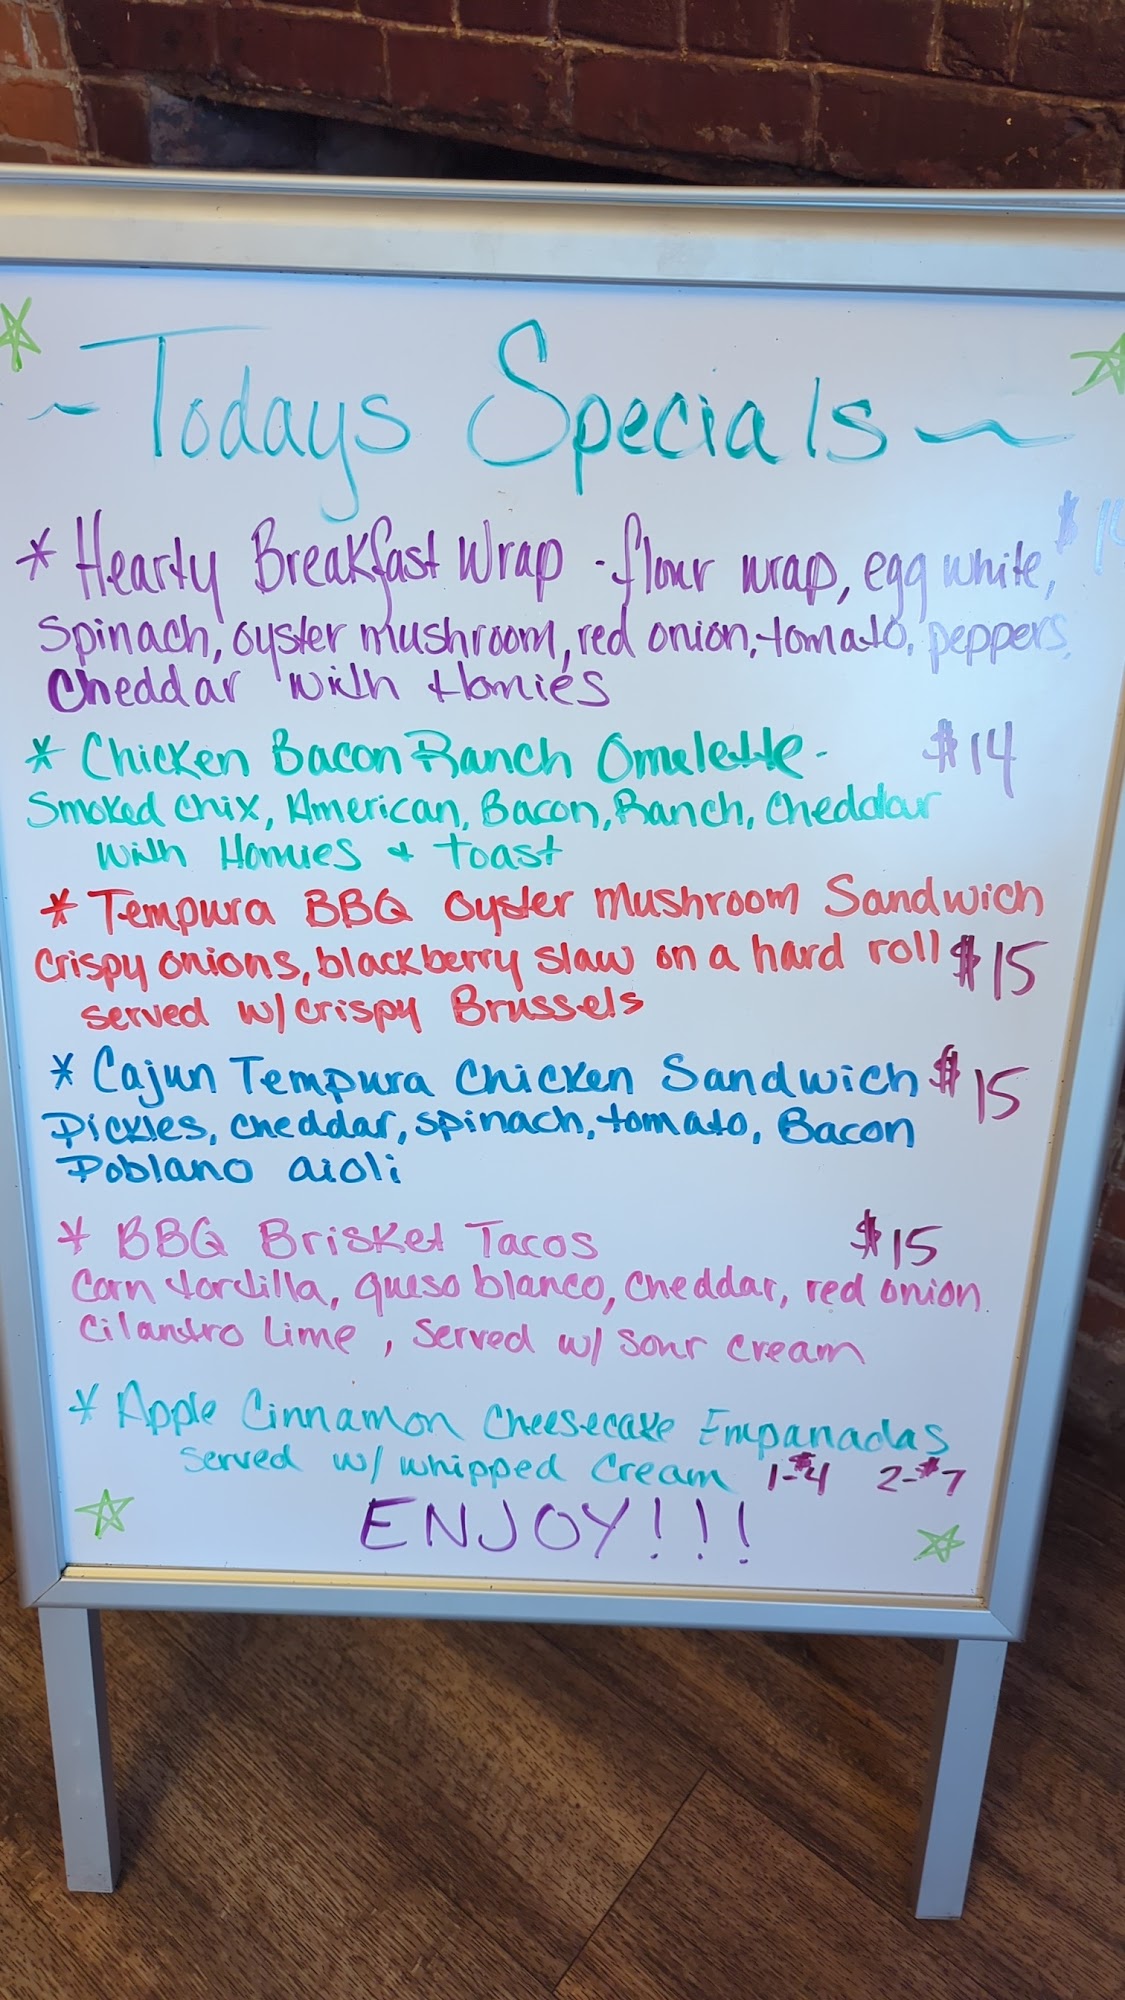 ~ Todays Specials ~
* Hearty Breakfast Wrap - flour wrap, egg white,
Spinach, oyster mushroom, red onion, tomato, peppers,
Cheddar with Homies
* Chicken Bacon Ranch Omelette - $14
Smoked chix, American, Bacon, Ranch, Cheddar
with Homies + toast
* Tempura BBQ Oyster Mushroom Sandwich
Crispy onions, blackberry slaw on a hard roll $15
served w/ crispy Brussels
* Cajun Tempura Chicken Sandwich $15
Pickles, cheddar, spinach, tomato, Bacon
Poblano aioli
* BBQ Brisket Tacos $15
Corn tortilla, queso blanco, cheddar, red onion
Cilantro Lime, Served w/ sour cream
* Apple Cinnamon Cheesecake Empanadas
Served w/ whipped Cream 1-$4 2-$7
ENJOY!!!